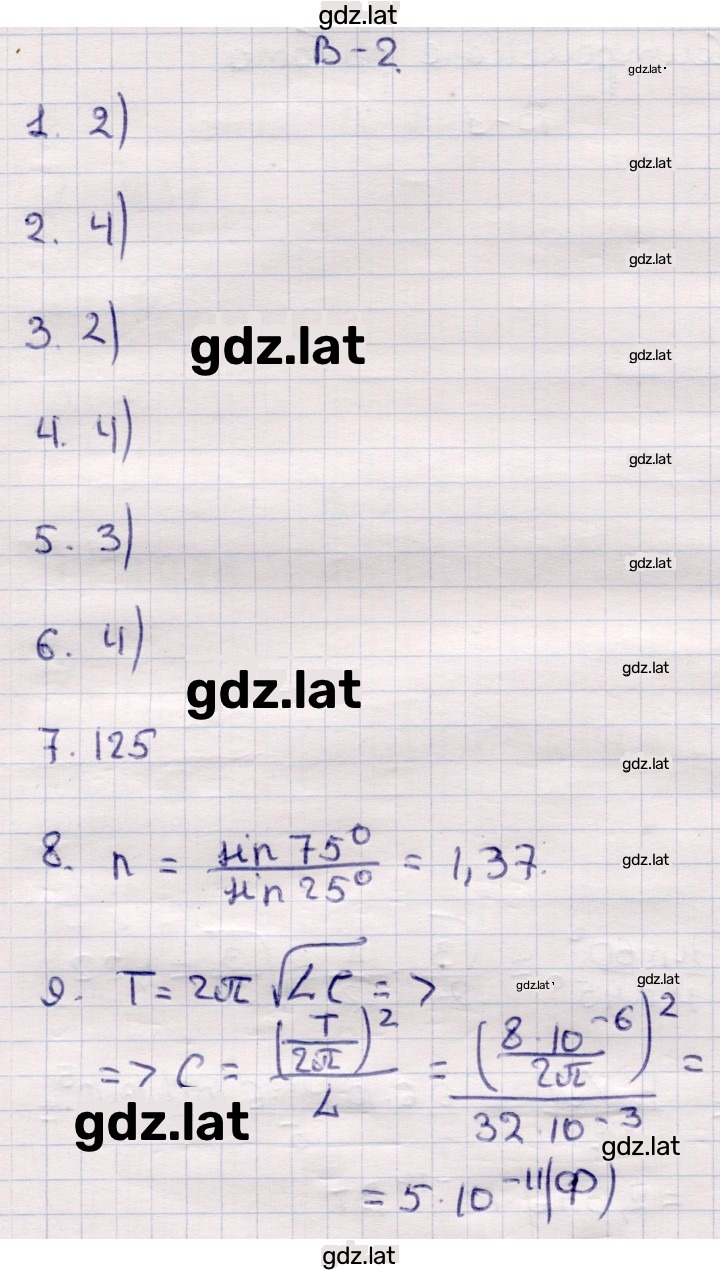 gdz.lat
В - 2.
gdz.lat
1. 2)
gdz.lat
2. 4)
gdz.lat
3. 2)
gdz.lat
gdz.lat
4. 4)
gdz.lat
5. 3)
gdz.lat
6. 4)
gdz.lat
gdz.lat
7. 125
gdz.lat
8. n = sin 75° / sin 25° = 1,37.
gdz.lat
9. T = 2π √LC = >
gdz.lat
gdz.lat
= > C = (T / 2π)² / L = (8 · 10⁻⁶ / 2π)² / 32 · 10⁻³ =
gdz.lat
gdz.lat
= 5 · 10⁻¹¹ (Ф)
gdz.lat